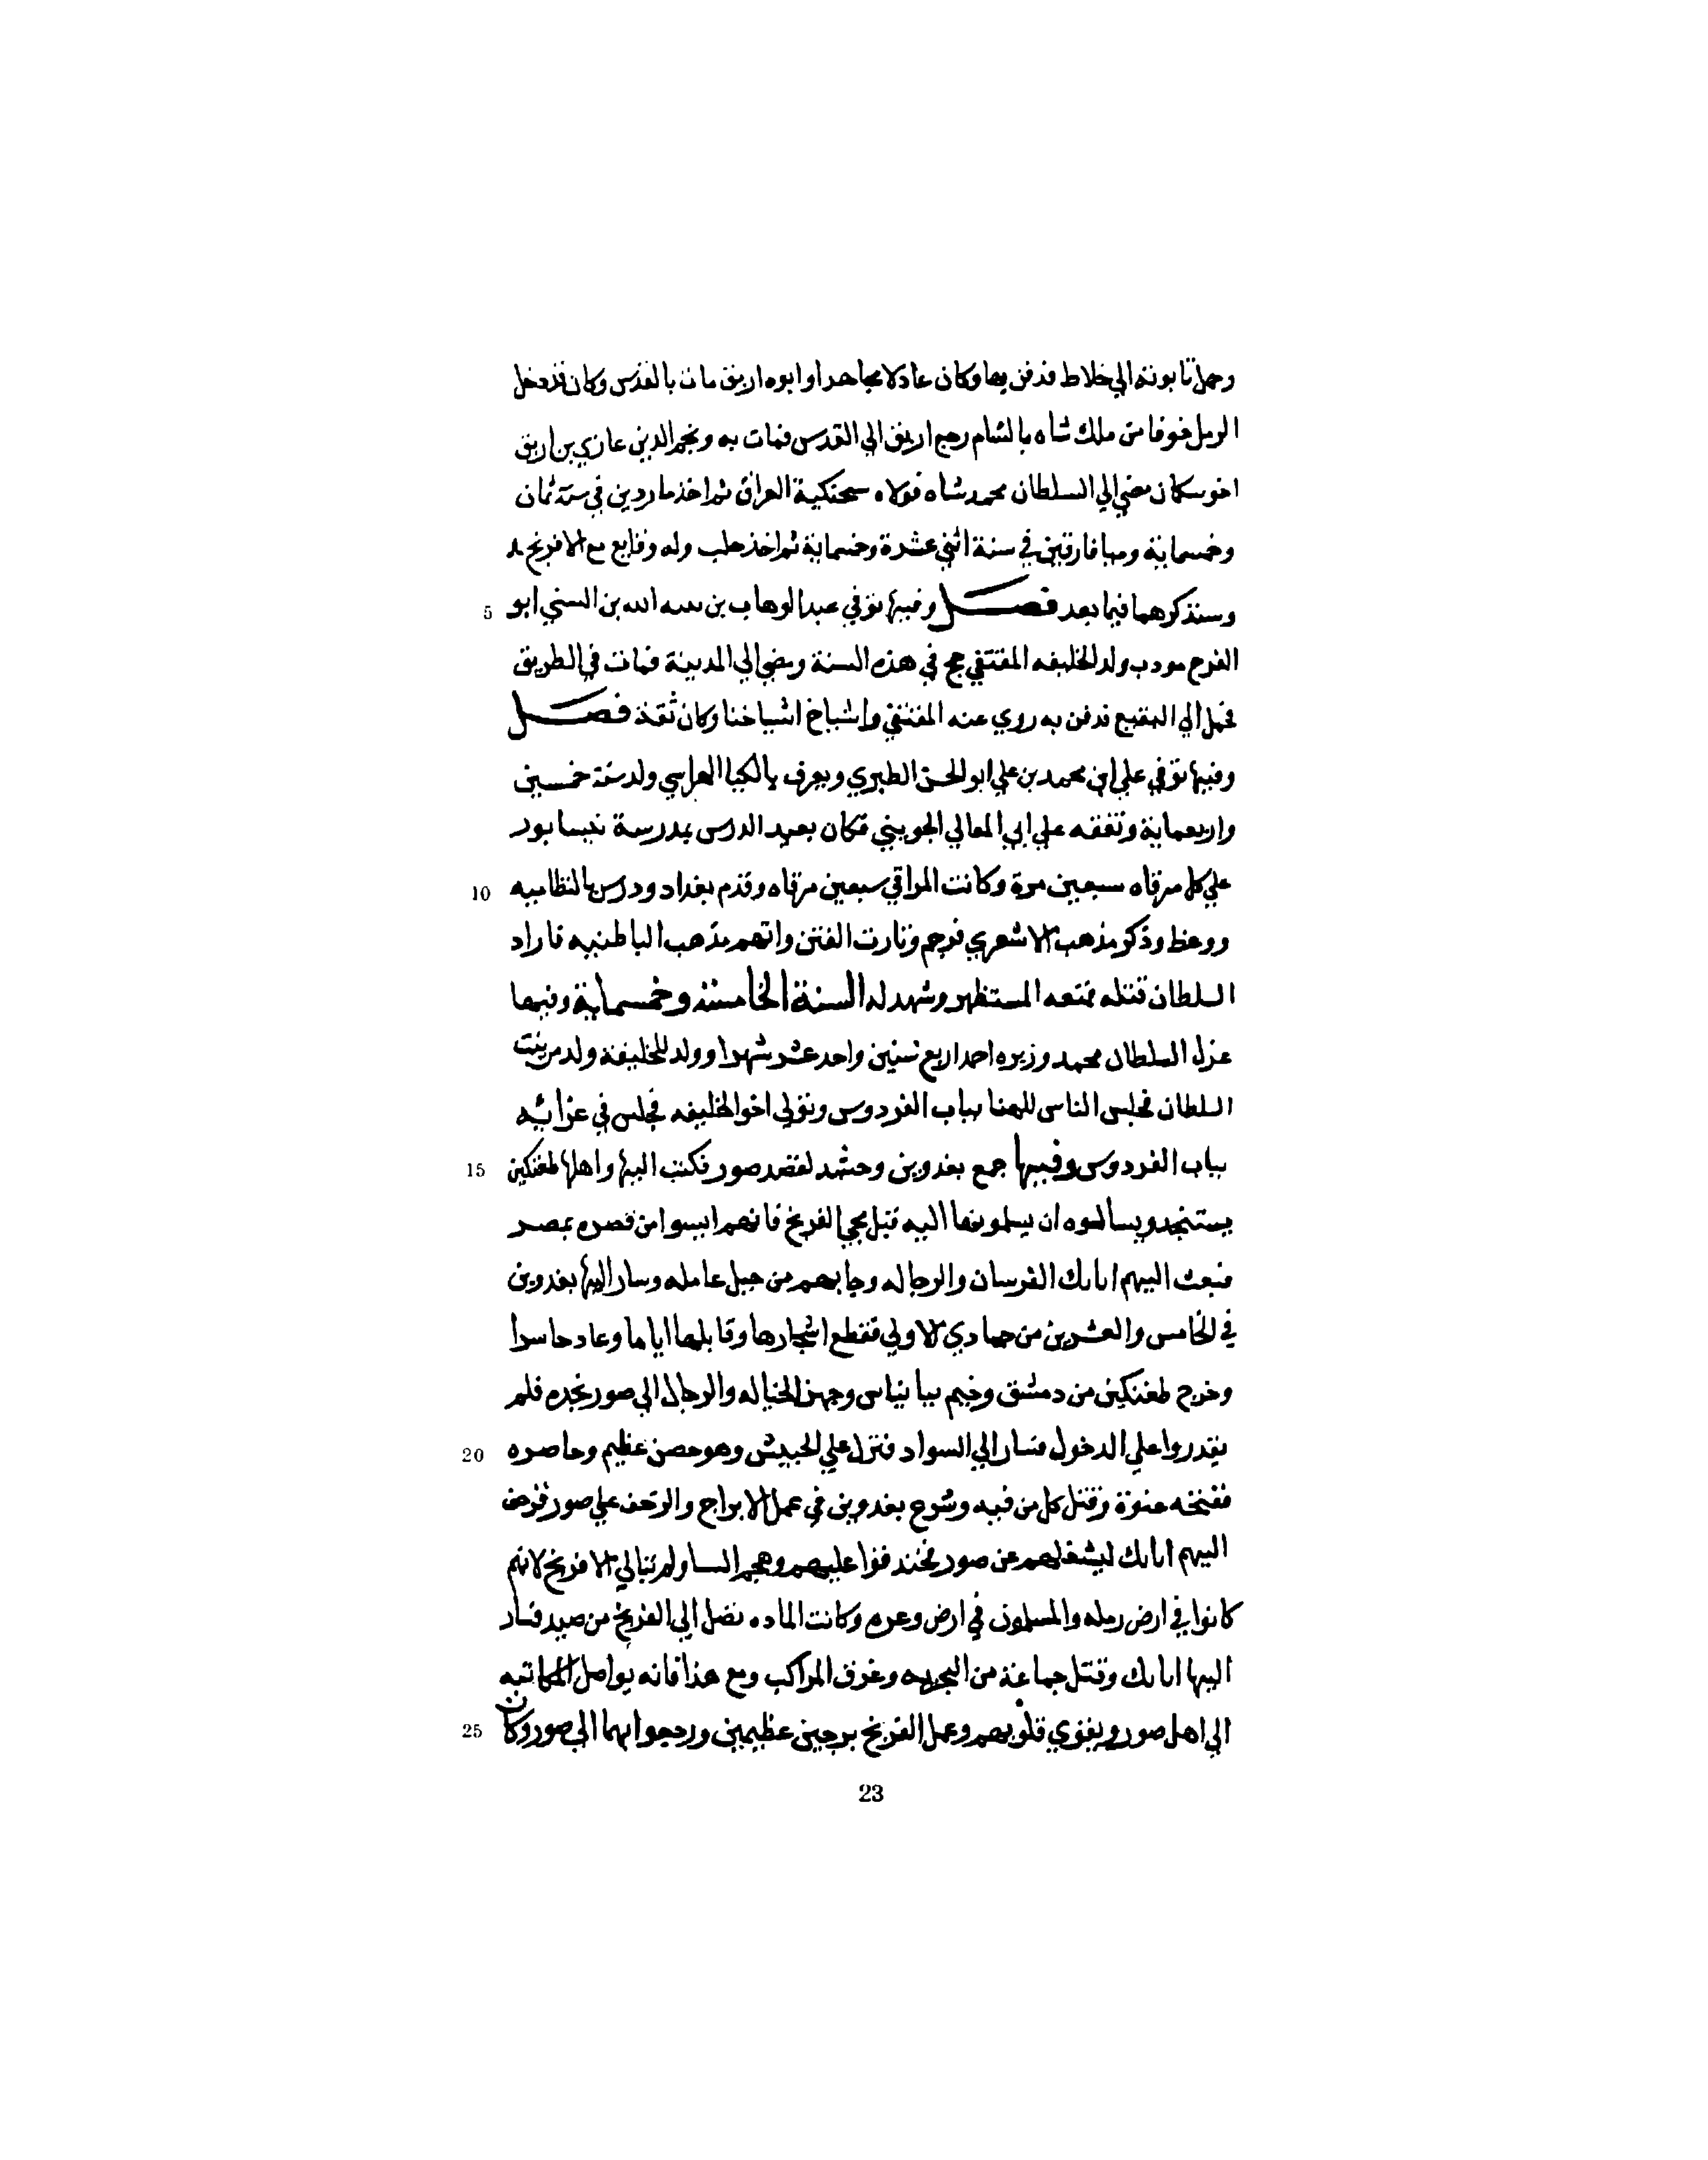 وحمل تابوته الي خلاط فدفن بها وكان عادلا مجاهدا وابوه ارتق مات بالقدس وكان قد دخل
الرمل خوفا من ملك شاه بالشام رجع ارتق الي القدس فمات به ونجم الدين غازي بن ارتق
اخو سكمان مضي الي السلطان محمد شاه فولاه سحنكية العراق ثم اخذ ماردين في سنة ثمان
وخمسماية وميافارقين في سنة اثني عشرة وخمسماية ثم اخذ حلب وله وقايع مع الافرنج
5 وسنذكرهما فيما بعد فصل وفيها توفي عبد الوهاب بن هبه الله بن السني ابو
الفرج مودب ولد الخليفه المقتفي حج في هذه السنة ومضي الي المدينة فمات في الطريق
فحمل الي البقيع فدفن به روي عنه المقتفي واشياخ اشياخنا وكان ثقة فصل
وفيها توفي علي ابن محمد بن علي ابو الحسن الطبري ويعرف بالكيا الهراسي ولد سنة خمسين
واربعماية وتفقه علي ابي المعالي الجويني فكان يعيد الدرس بمدرسة نيسابور
10 علي كل مرقاه سبعين مرة وكانت المراقي سبعين مرقاه وقدم بغداد ودرس بالنظاميه
ووعظ وذكر مذهب الاشعري فرجم وثارت الفتن واتهم بمذهب الباطنيه فاراد
السلطان قتله فمنعه المستظهر وشهد له السنة الخامسة وخمسماية وفيها
عزل السلطان محمد وزيره احمد اربع سنين واحد عشر شهرا وولد للخليفة ولد من بنت
السلطان فجلس الناس للهنا بباب الفردوس وتوفي اخو الخليفه فجلس في عزائيه
15 بباب الفردوس وفيها جمع بغدوين وحشد لقصد صور فكتب اليها واهلها طغتكين
يستنجد ويسالوه ان يسلموها اليه قبل مجي الفرنج فانهم ايسوا من قصره بمصر
فبعث اليهم اتابك الفرسان والرجاله وجابهم من جبل عامله وسار اليها بغدوين
في الخامس والعشرين من جمادي الاولي فقطع اشجارها وقابلها اياما وعاد خاسرا
وخرج طغتكين من دمشق وخيم ببانياس وجهز الخياله والرجال الي صور نجده فلم
20 يقدروا علي الدخول فسار الي السواد فنزل علي الحبيش وهو حصن عظيم وحاصره
ففتحه عنوة وقتل كل من فيه وشرع بغدوين في عمل الابراج والزحف علي صور فزحف
اليهم اتابك ليشغلهم عن صور فخندقوا عليهم وهجم الشتا ولم تبالي الافرنج لانهم
كانوا في ارض رمله والمسلمون في ارض وعره وكانت الماده تصل الي الفرنج من صيدا فسار
اليها اتابك وقتل جماعة من البحريه وغرق المراكب ومع هذا فانه يواصل المكاتبه
25 الي اهل صور ويقوي قلوبهم وعمل الفرنج برجين عظيمين ورجعوا بهما الي صور وكان
23